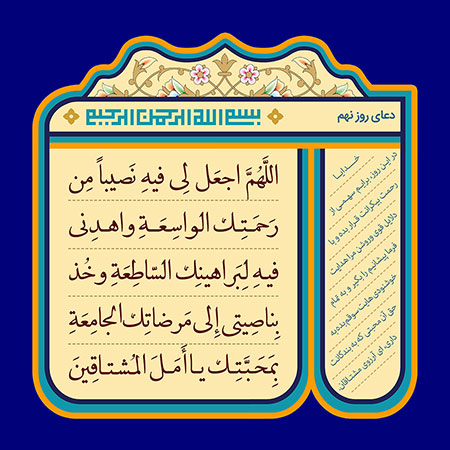 دعای روز نهم
بسم الله الرحمن الرحیم
اللَّهُمَّ اجعَل لِی فیهِ نَصیباً مِن
رَحمَتِـكَ الواسِعَـةِ واهـدِنی
فیهِ لِبَراهینِكَ السّاطِعَةِ وخُذ
بِناصِیَتی إلی مَرضاتِكَ الجامِعَةِ
بِمَحَبَّتِـكَ یـا أَمَـلَ المُشتـاقینَ
خـدایـا
در این روز، برایم سهمی از
رحمت بیکرانت قرار بده و با
دلایل قوی و روشن مرا هدایت
فرما پیشانیم را بگیر و به تمام
خوشنودی‌هایت سوقم بده به
حق آن محبتی که به بندگانت
داری، ای آرزوی مشتاقان.